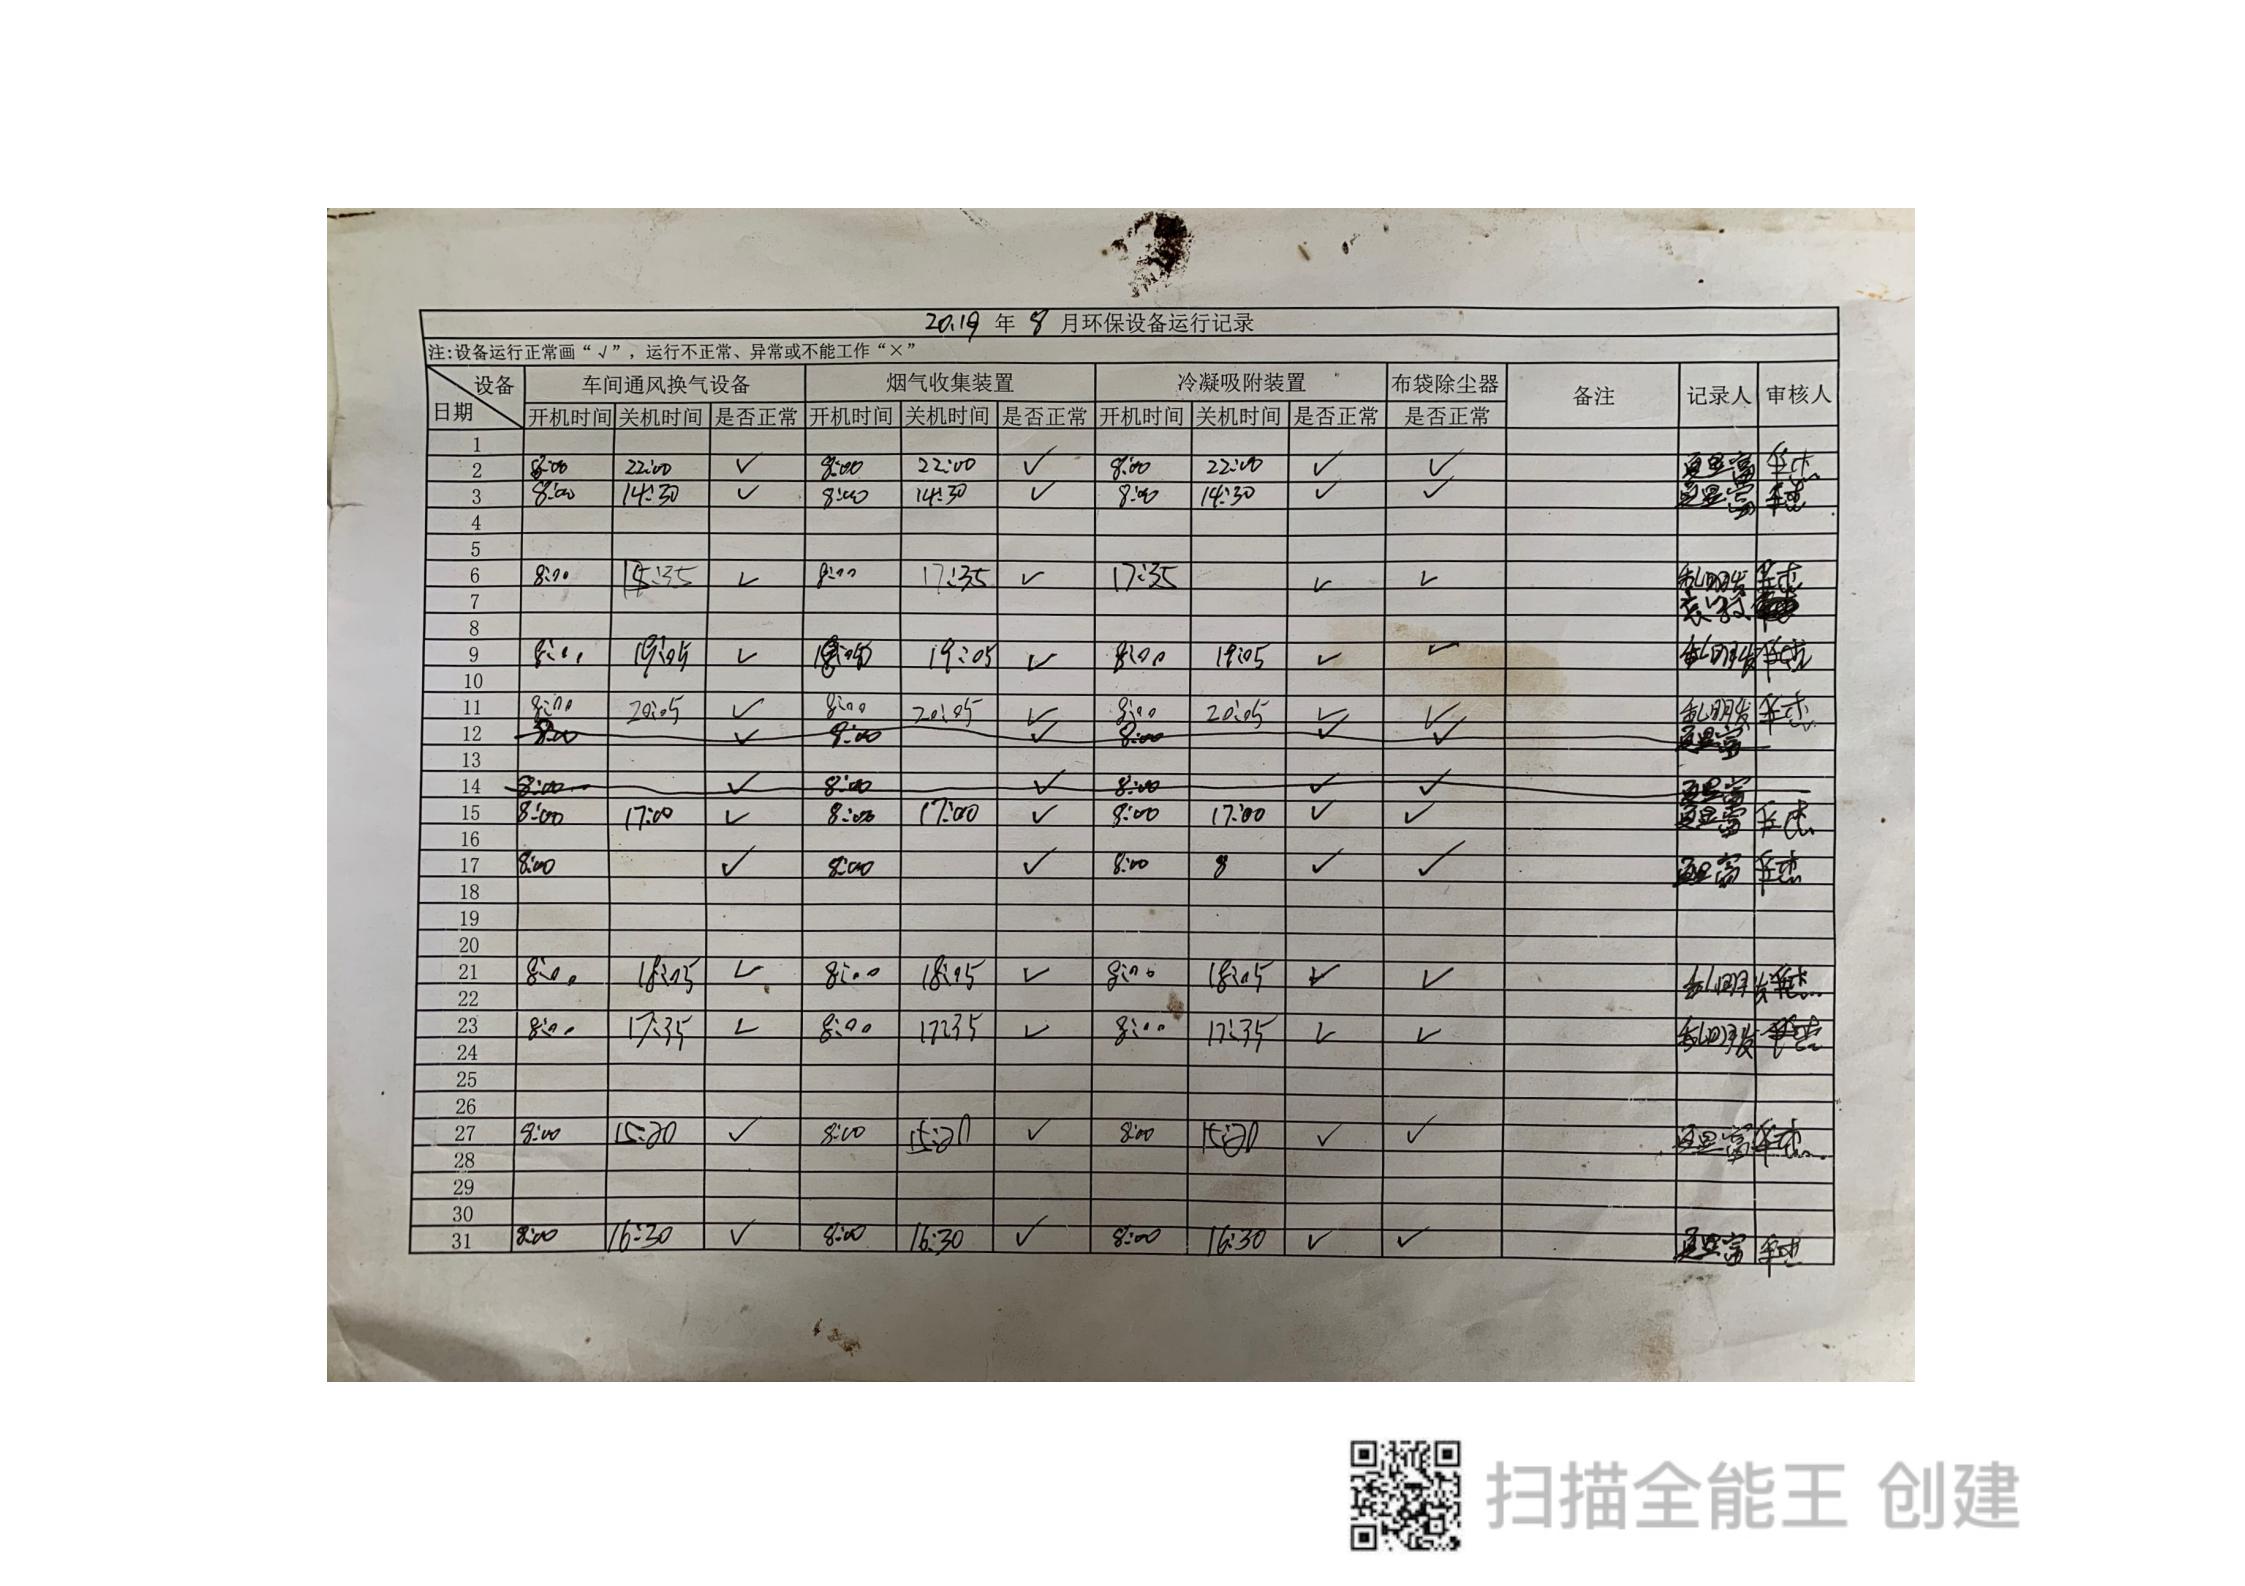 2019 年 8 月环保设备运行记录
注:设备运行正常画“√”，运行不正常、异常或不能工作“×”
设备 车间通风换气设备 烟气收集装置 冷凝吸附装置 布袋除尘器 备注 记录人 审核人
日期 开机时间 关机时间 是否正常 开机时间 关机时间 是否正常 开机时间 关机时间 是否正常 是否正常
1
2 8:00 22:00 ✓ 8:00 22:00 ✓ 8:00 22:00 ✓ ✓
3 8:00 14:30 ✓ 8:00 14:30 ✓ 8:00 14:30 ✓ ✓
4
5
6 8:00 ✓ 8:00 17:35 ✓ 17:35 ✓ ✓
7
8
9 8:00 19:05 ✓ 19:05 ✓ 8:00 19:05 ✓ ✓
10
11 8:00 20:05 ✓ 8:00 20:05 ✓ 8:00 20:05 ✓ ✓
12 8:00 ✓ 8:00 ✓ 8:00 ✓ ✓
13
14 8:00 ✓ 8:00 ✓ 8:00 ✓ ✓
15 8:00 17:00 ✓ 8:00 17:00 ✓ 8:00 17:00 ✓ ✓
16
17 8:00 ✓ 8:00 ✓ 8:00 8 ✓ ✓
18
19
20
21 8:00 18:05 ✓ 8:00 18:05 ✓ 8:00 18:05 ✓ ✓
22
23 8:00 17:35 ✓ 8:00 17:35 ✓ 8:00 17:35 ✓ ✓
24
25
26
27 8:00 15:20 ✓ 8:00 15:20 ✓ 8:00 15:20 ✓ ✓
28
29
30
31 8:00 16:30 ✓ 8:00 16:30 ✓ 8:00 16:30 ✓ ✓
扫描全能王 创建